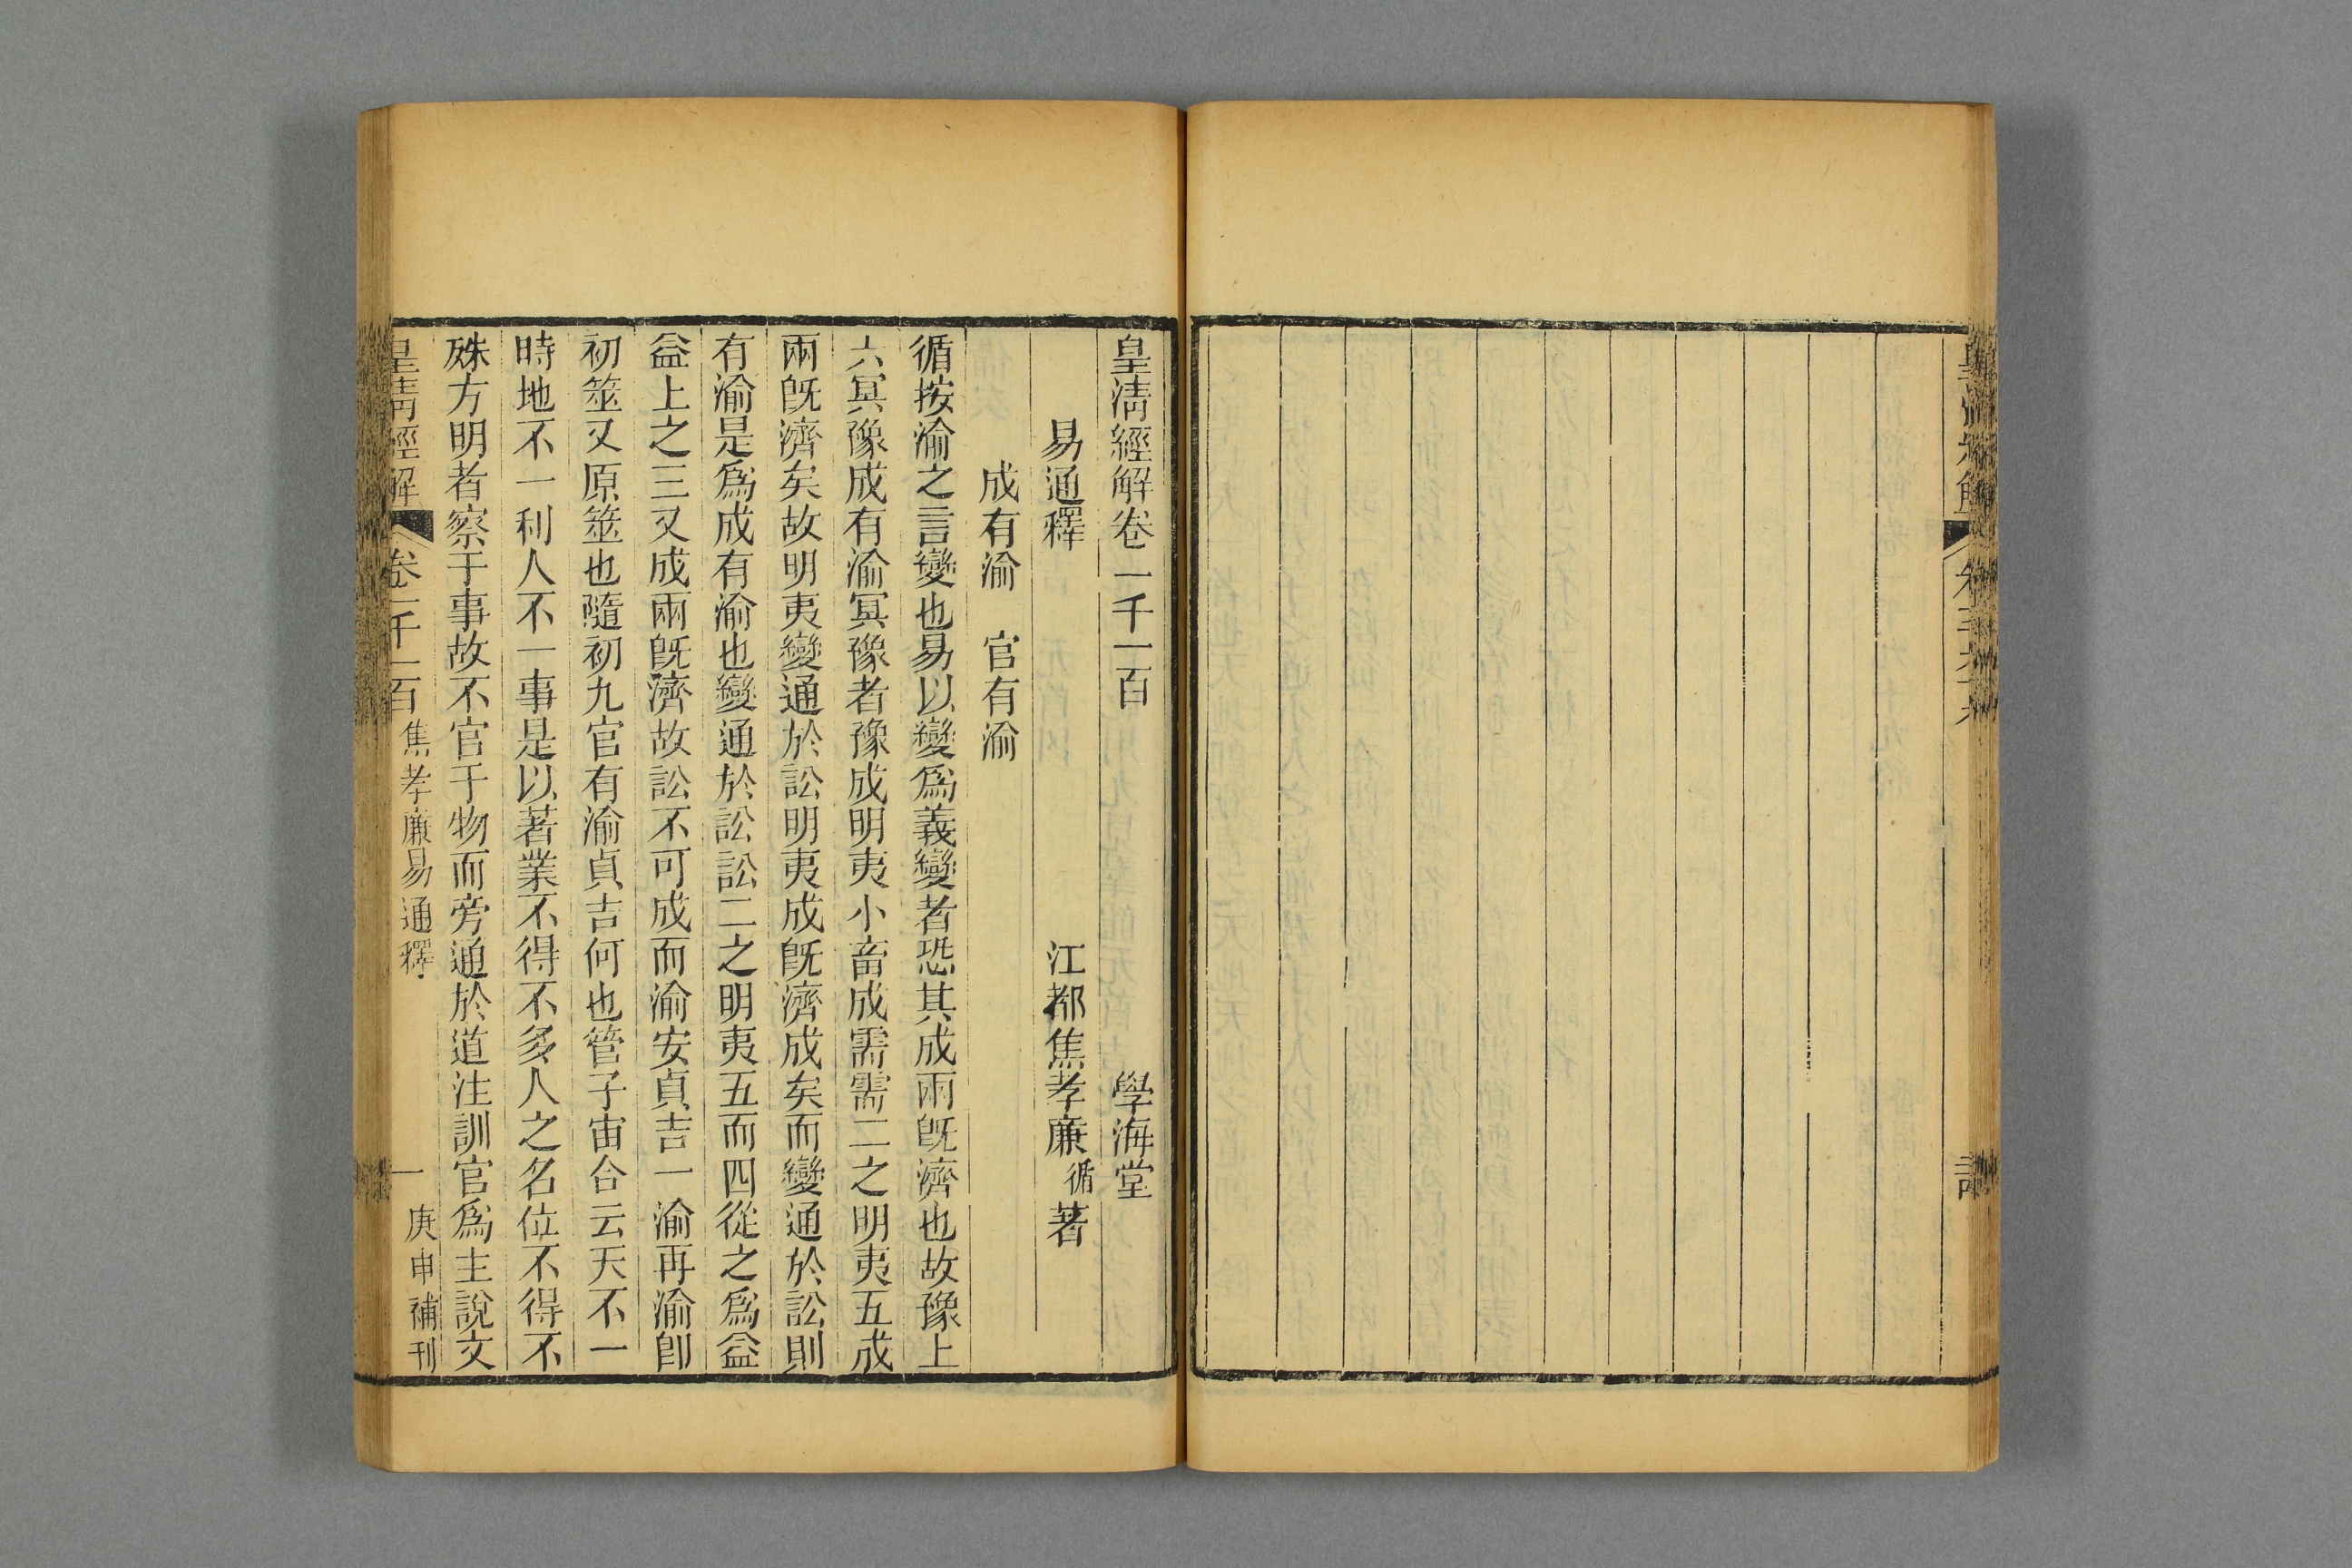 皇清經解卷一千一百　學海堂
易通釋　江都焦孝廉循著
成有渝　官有渝
循按渝之言變也易以變爲義變者恐其成兩旣濟也故豫上
六冥豫成有渝冥豫者豫成明夷小畜成需需二之明夷五成
兩旣濟矣故明夷變通於訟明夷成旣濟成矣而變通於訟則
有渝是爲成有渝也變通於訟訟二之明夷五而四從之爲益
益上之三又成兩旣濟故訟不可成而渝安貞吉一渝再渝卽
初筮又原筮也隨初九官有渝貞吉何也管子宙合云天不一
時地不一利人不一事是以著業不得不多人之名位不得不
殊方明者察于事故不官于物而旁通於道注訓官爲主說文
皇清經解　卷一千一百　焦孝廉易通釋　一　庚申補刊